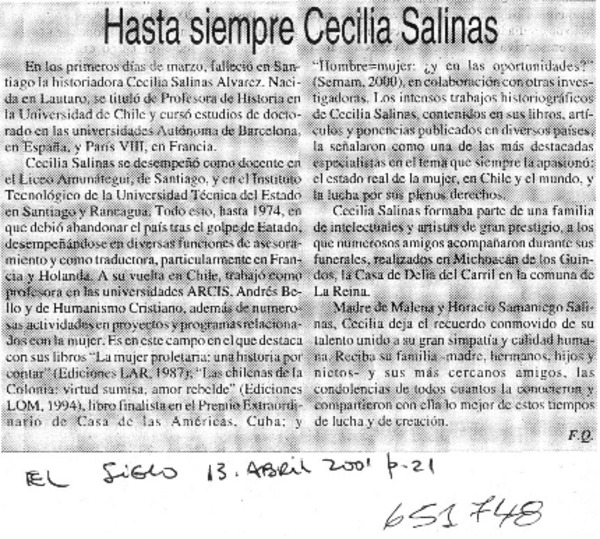 Hasta siempre Cecilia Salinas
En los primeros días de marzo, falleció en San-
tiago la historiadora Cecilia Salinas Alvarez. Naci-
da en Lautaro, se tituló de Profesora de Historia en
la Universidad de Chile y cursó estudios de docto-
rado en las universidades Autónoma de Barcelona,
en España, y París VIII, en Francia.
Cecilia Salinas se desempeñó como docente en
el Liceo Amunátegui, de Santiago, y en el Instituto
Tecnológico de la Universidad Técnica del Estado
en Santiago y Rancagua. Todo esto, hasta 1974, en
que debió abandonar el país tras el golpe de Estado,
desempeñándose en diversas funciones de asesora-
miento y como traductora, particularmente en Fran-
cia y Holanda. A su vuelta en Chile, trabajó como
profesora en las universidades ARCIS, Andrés Be-
llo y de Humanismo Cristiano, además de numero-
sas actividades en proyectos y programas relaciona-
dos con la mujer. Es en este campo en el que destaca
con sus libros "La mujer proletaria: una historia por
contar" (Ediciones LAR, 1987); "Las chilenas de
la Colonia: virtud sumisa, amor rebelde" (Ediciones
LOM, 1994), libro finalista en el Premio Extraordi-
nario de Casa de las Américas, Cuba; y
"Hombre=mujer: ¿y en las oportunidades?"
(Sernam, 2000), en colaboración con otras inves-
tigadoras. Los intensos trabajos historiográficos
de Cecilia Salinas, contenidos en sus libros, artí-
culos y ponencias publicados en diversos países,
la señalaron como una de las más destacadas
especialistas en el tema que siempre la apasionó:
el estado real de la mujer, en Chile y el mundo, y
la lucha por sus plenos derechos.
Cecilia Salinas formaba parte de una familia
de intelectuales y artistas de gran prestigio, a los
que numerosos amigos acompañaron durante sus
funerales, realizados en Michoacán de los Guin-
dos, la Casa de Delia del Carril en la comuna de
La Reina.
Madre de Malena y Horacio Samaniego Sali-
nas, Cecilia deja el recuerdo conmovido de su
talento unido a su gran simpatía y calidad huma-
na. Reciba su familia -madre, hermanos, hijos y
nietos- y sus más cercanos amigos, las
condolencias de todos cuantos la conocieron y
compartieron con ella lo mejor de estos tiempos
de lucha y de creación.
F.Q.
EL SIGLO 13. ABRIL 2001 p.21
651748